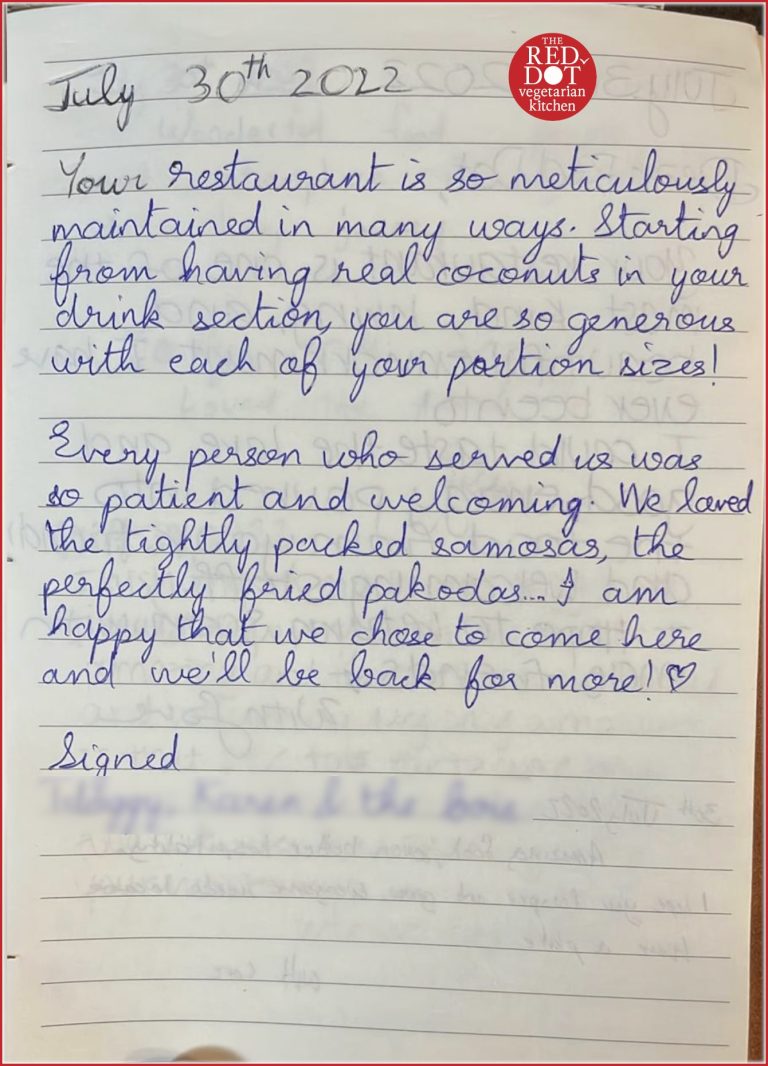 THE
RED
DOT
vegetarian
kitchen
July 30th 2022
Your restaurant is so meticulously
maintained in many ways. Starting
from having real coconuts in your
drink section, you are so generous
with each of your portion sizes!
Every person who served us was
so patient and welcoming. We loved
the tightly packed samosas, the
perfectly fried pakodas... I am
happy that we chose to come here
and we'll be back for more! ♡
Signed